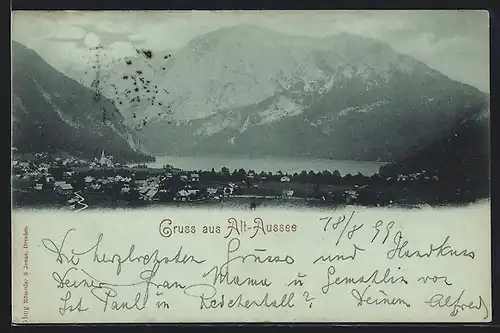 Gruss aus Alt-Aussee
18/8 99
Die herzlichsten Grüsse und Handkuss
Deiner Frau Mama u Gemahlin von
Ist Paul in Reichenhall? Deinem Alfred
Römmler & Jonas, Dresden.